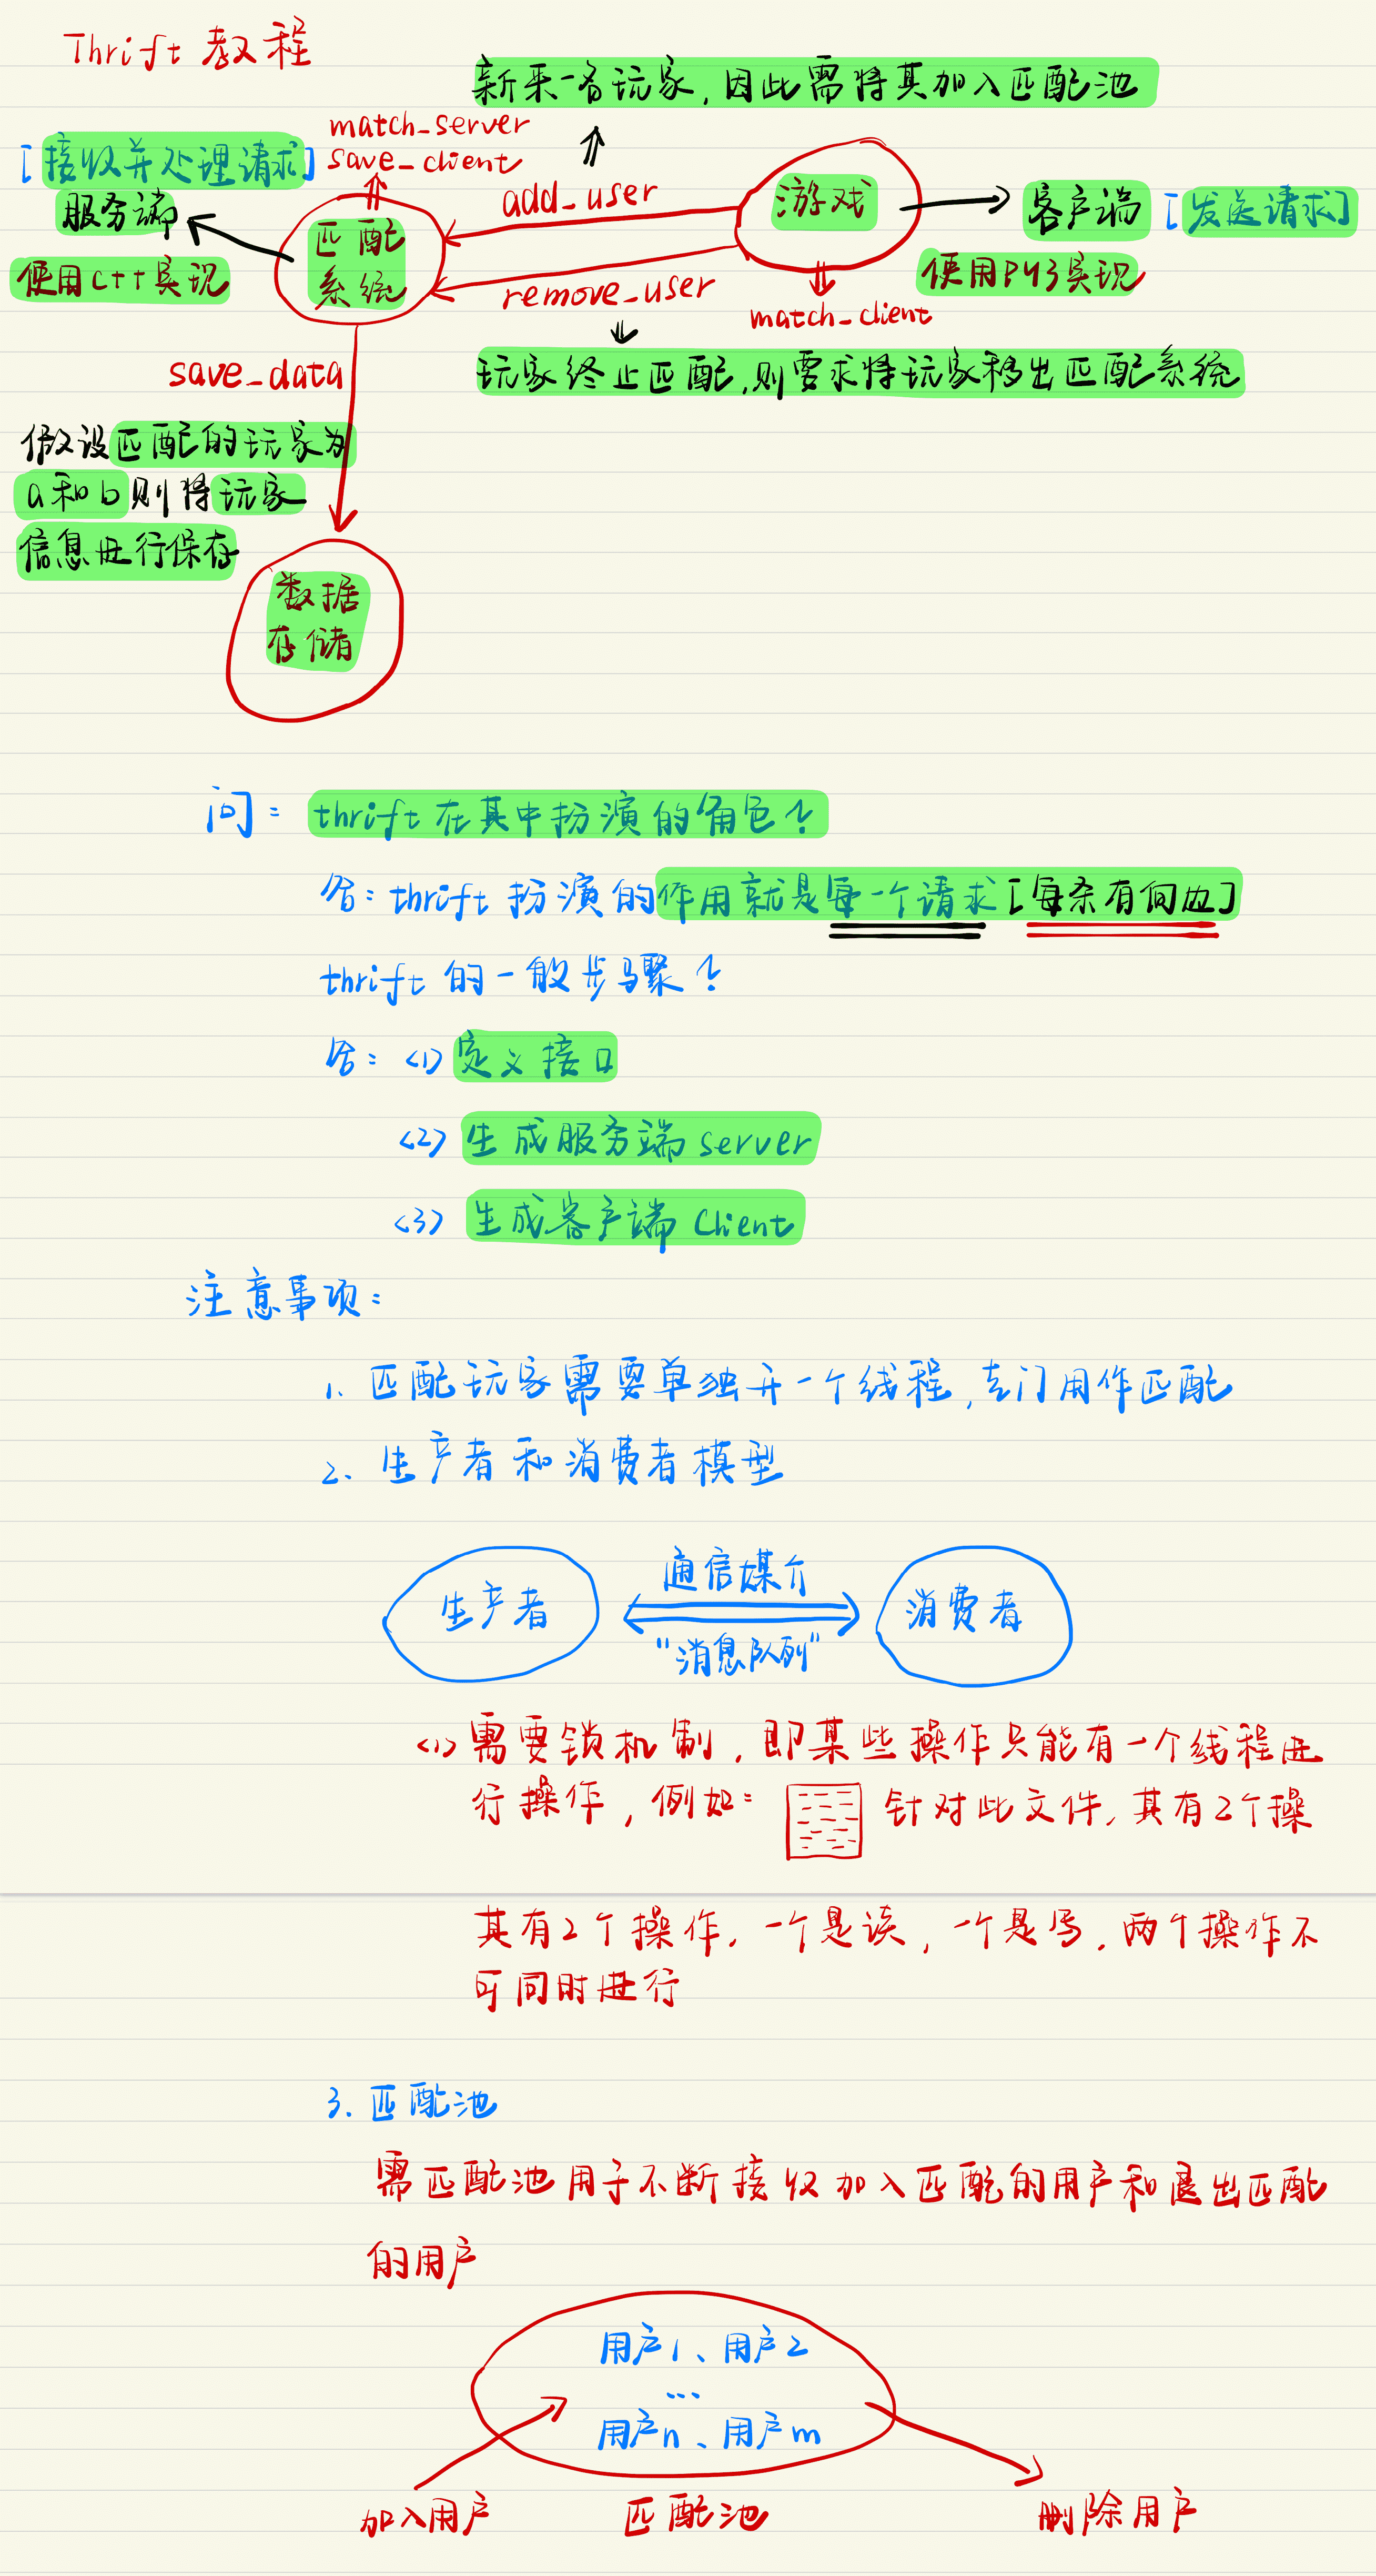 Thrift 教程
新来一名玩家,因此需将其加入匹配池
match_server
save_client
[接收并处理请求]
服务端
使用C++实现
匹配
系统
add_user
remove_user
游戏
客户端 [发送请求]
使用PY3实现
match_client
玩家终止匹配,则要求将玩家移出匹配系统
save_data
假设匹配的玩家为
a和b则将玩家
信息进行保存
数据
存储
问: thrift在其中扮演的角色?
答: thrift 扮演的作用就是每一个请求[每条有向边]
thrift 的一般步骤?
答: <1> 定义接口
<2> 生成服务端 server
<3> 生成客户端 Client
注意事项:
1. 匹配玩家需要单独开一个线程,专门用作匹配
2. 生产者和消费者模型
生产者
通信媒介
"消息队列"
消费者
<1> 需要锁机制,即某些操作只能有一个线程进
行操作,例如: 针对此文件,其有2个操
其有2个操作,一个是读,一个是写,两个操作不
可同时进行
3. 匹配池
需匹配池用于不断接收加入匹配的用户和退出匹配
的用户
用户1、用户2
...
用户n、用户m
加入用户
匹配池
删除用户